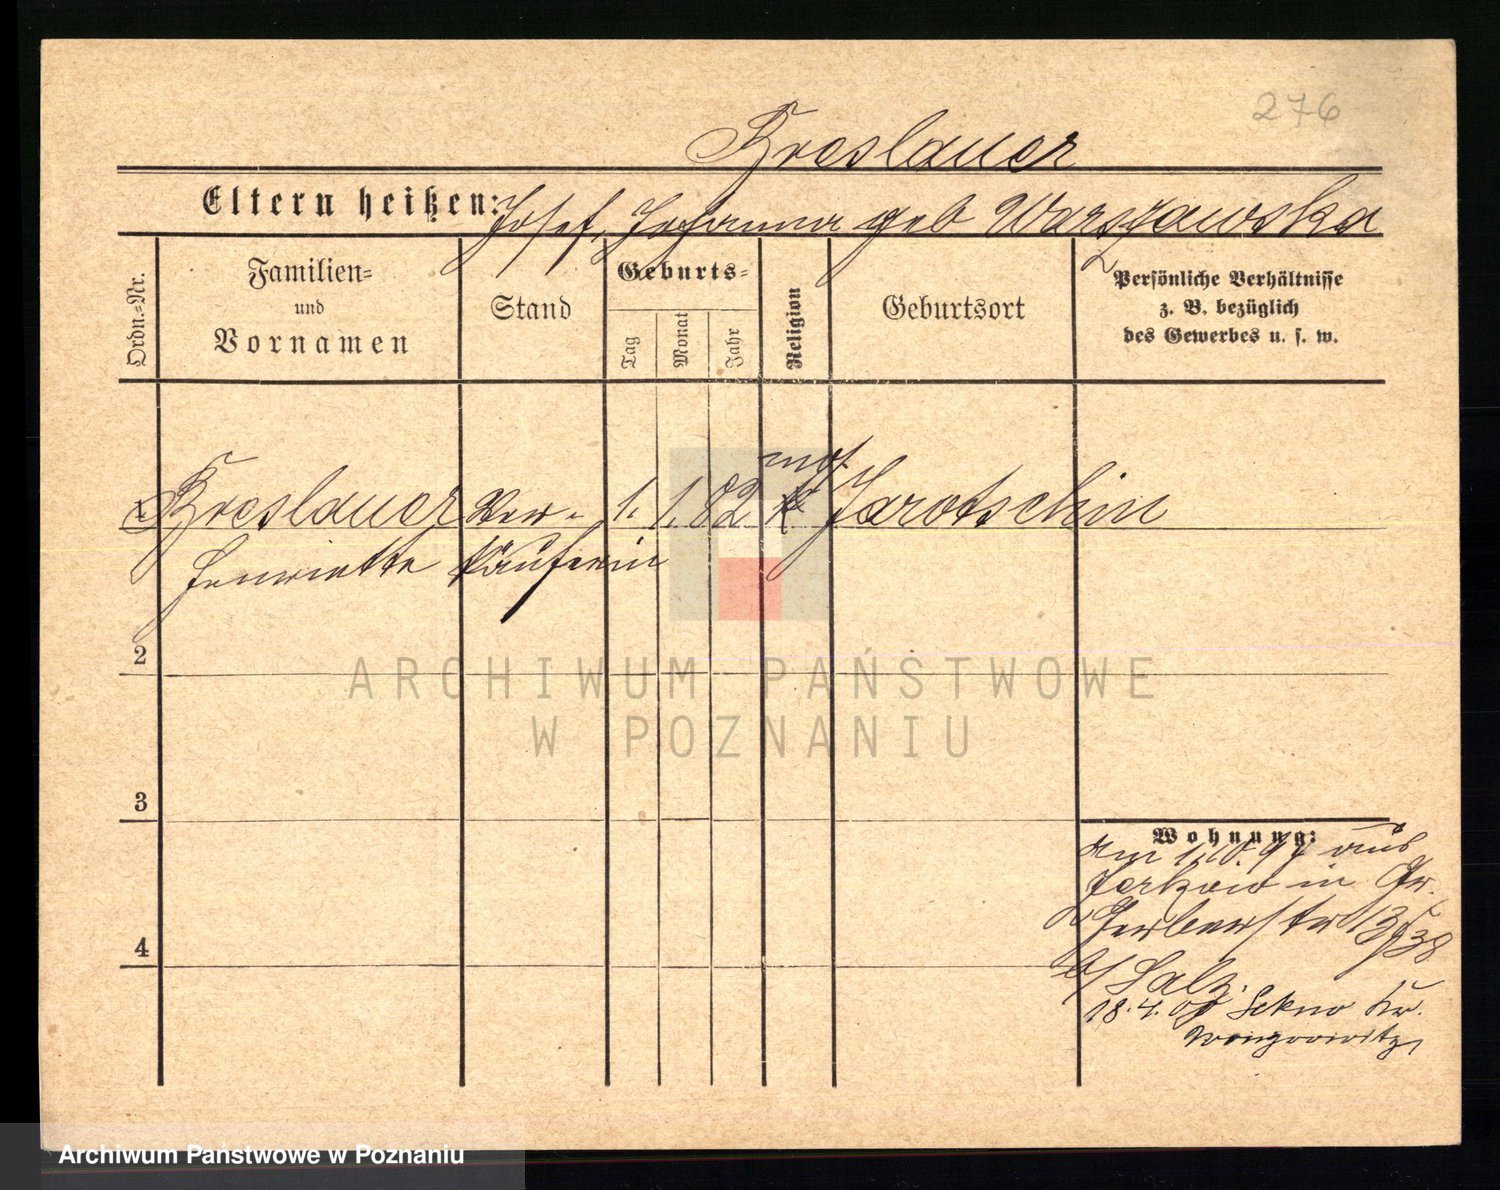 276
Breslauer
Eltern heißen: Josef, Johanna geb Warszawska
Ordn.-Nr.
Familien-
und
Vornamen
Stand
Geburts-
Tag
Monat
Jahr
Religion
Geburtsort
Persönliche Verhältnisse
z. B. bezüglich
des Gewerbes u. s. w.
mos.
1 Breslauer Ver- 1. 1. 82 Jarotschin
Henriette käuferin
2
3
4
Wohnung:
Am 1.10.97 aus
in Gr.
Gerberstr
b/ Salz.
18.4.07 Sekno Kr.
Wongrowitz
ARCHIWUM PAŃSTWOWE
W POZNANIU
Archiwum Państwowe w Poznaniu